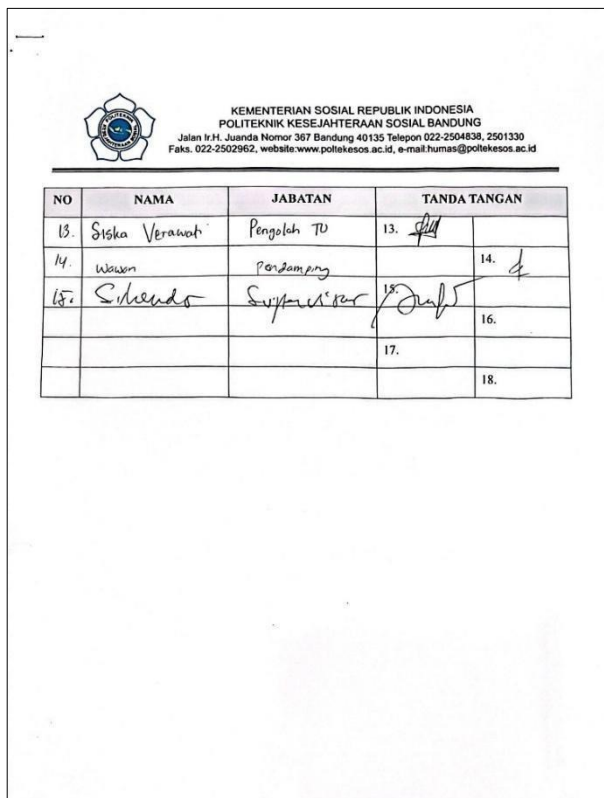 KEMENTERIAN SOSIAL REPUBLIK INDONESIA
POLITEKNIK KESEJAHTERAAN SOSIAL BANDUNG
Jalan Ir.H. Juanda Nomor 367 Bandung 40135 Telepon 022-2504838, 2501330
Faks. 022-2502962, website:www.poltekesos.ac.id, e-mail:humas@poltekesos.ac.id
NO NAMA JABATAN TANDA TANGAN
13. Siska Verawati Pengolah TU 13.
14. Wawan Pendamping 14.
15. Supervisor 15.
16.
17.
18.